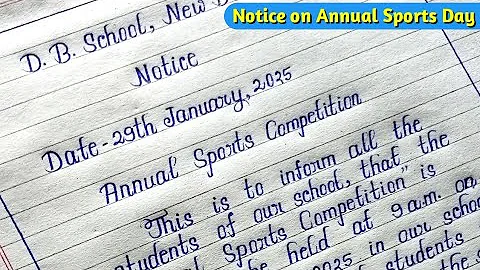 Notice on Annual Sports Day
D. B. School, New
Notice
Date - 29th January, 2025
Annual Sports Competition
This is to inform all the
students of our school, that the
Sports Competition" is
be held at 9 a.m. on
2025 in our school
students
the